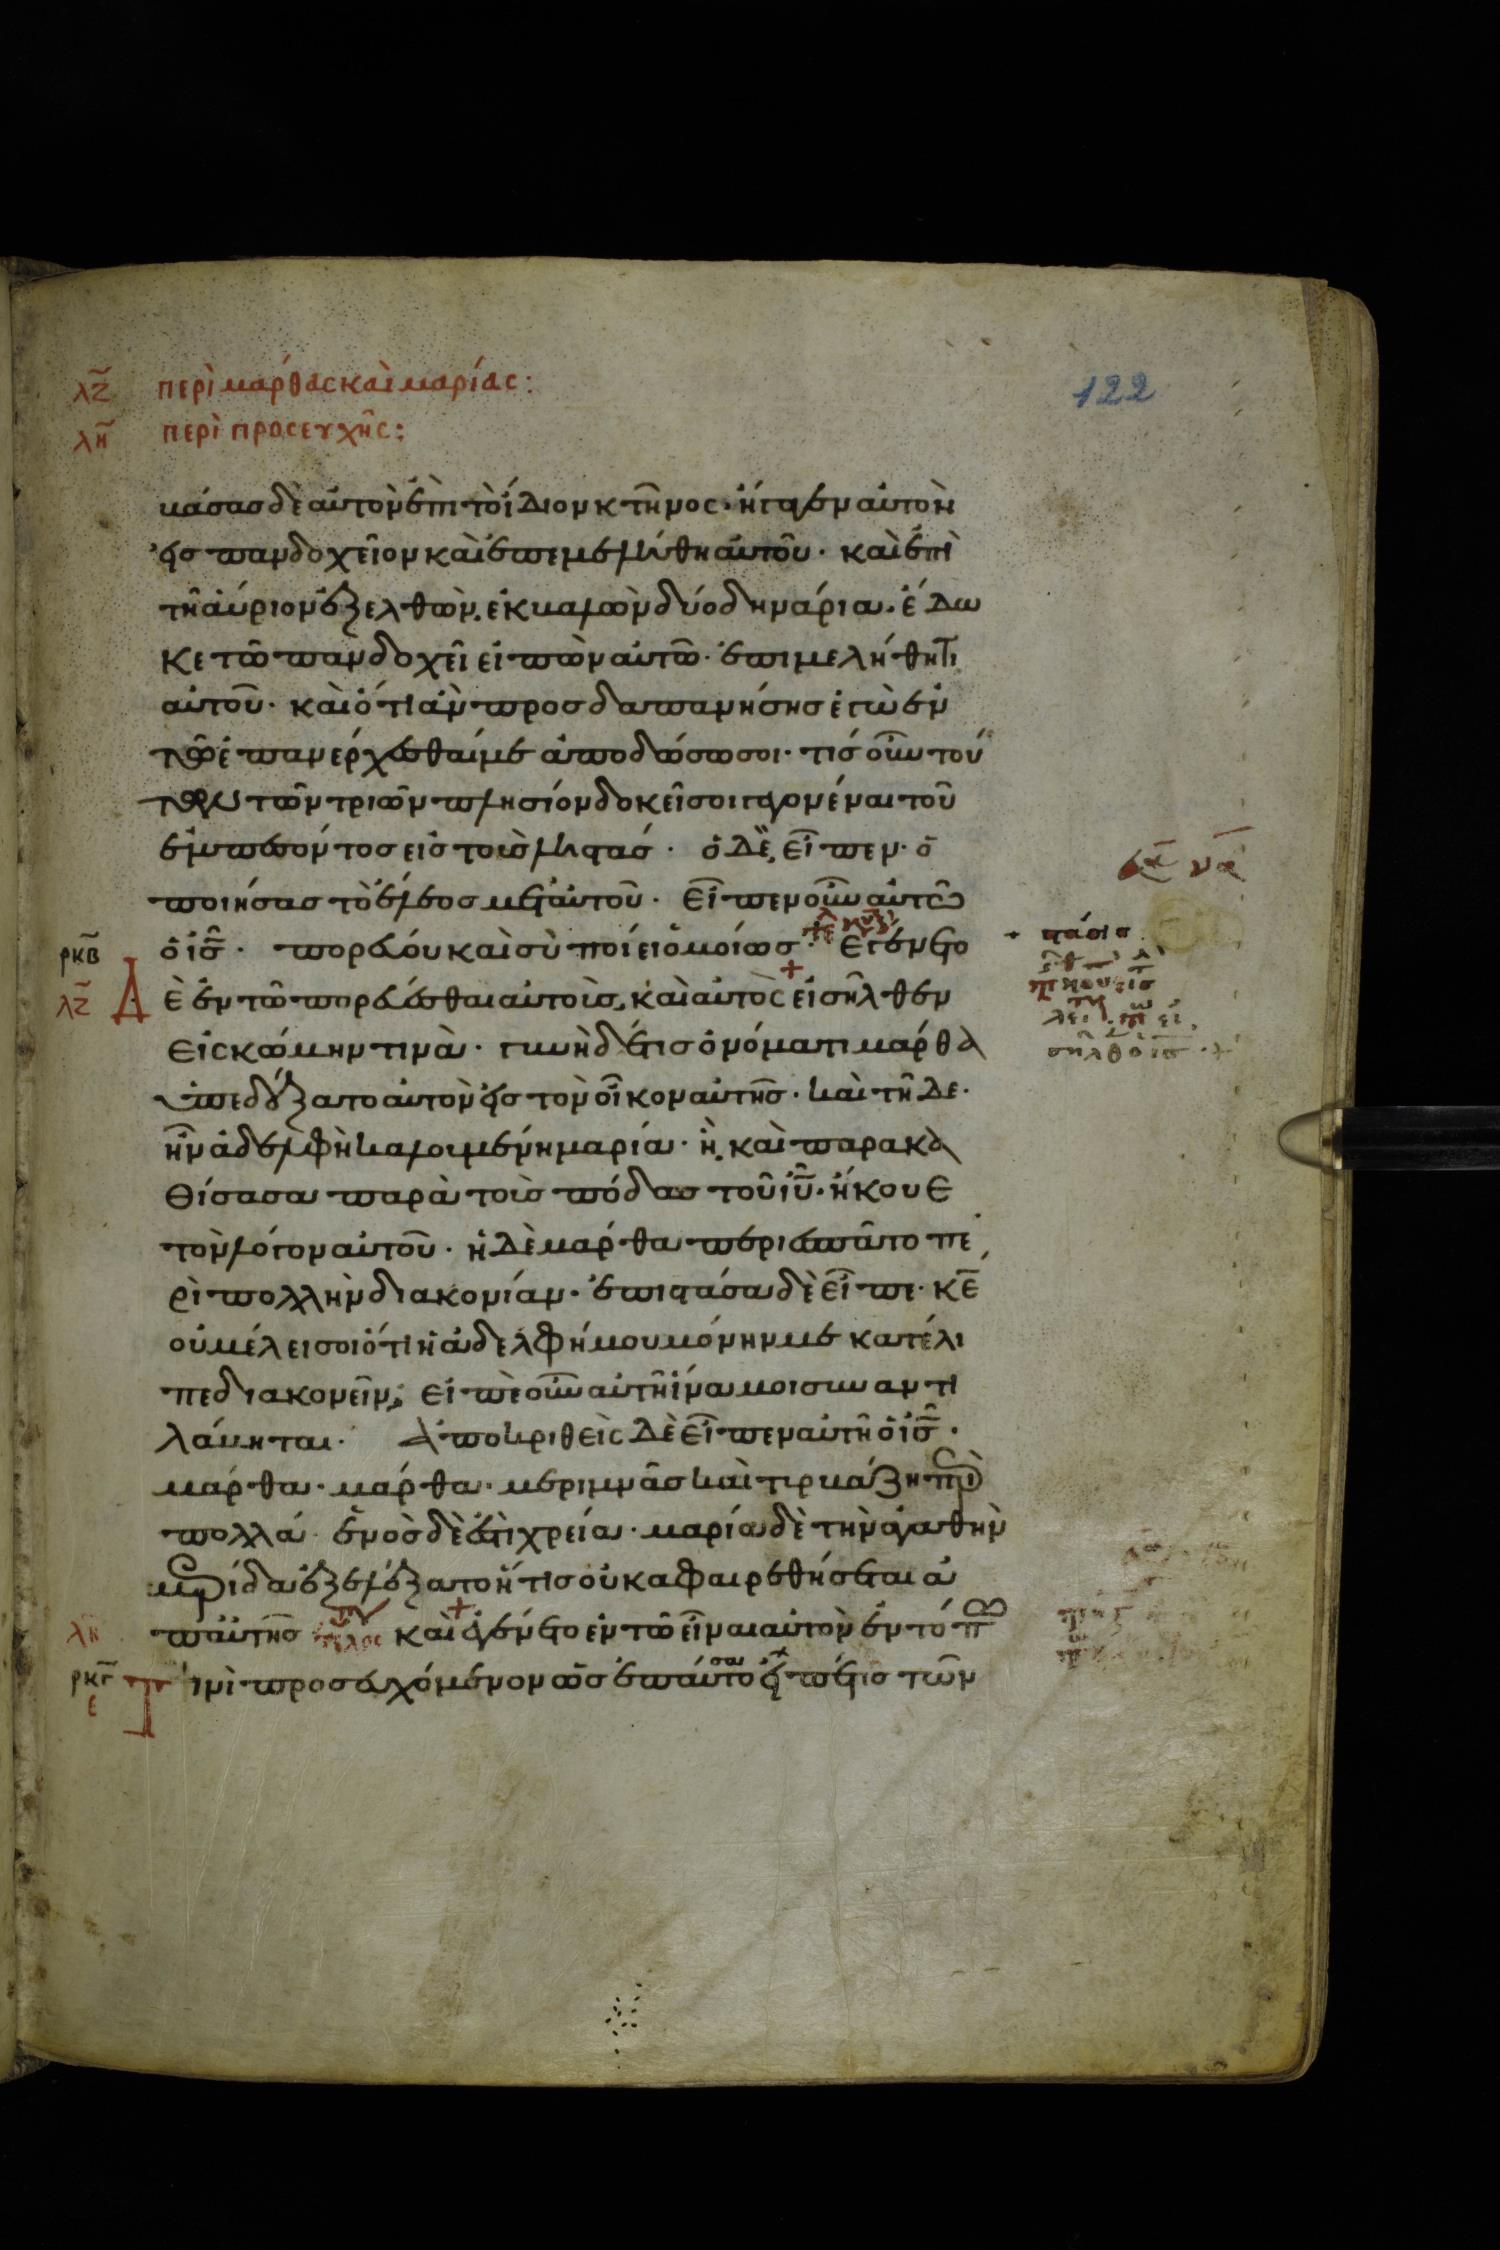 λζ περὶ μάρθας καὶ μαρίας:
122
λη περὶ προσευχῆς:
κάσας δὲ αὐτὸν ἐπὶ τὸ ἴδιον κτῆνος· ἤγαγεν αὐτὸν
εἰς πανδοχεῖον καὶ ἐπεμελήθη αὐτοῦ· καὶ ἐπὶ
τῆ αὔριον ἐξελθὼν, ἐκβαλὼν δύο δηνάρια· ἔδω
κε τῶ πανδοχεῖ εἰπὼν αὐτῶ· ἐπιμελήθητι
αὐτοῦ· καὶ ὅτι ἂν προσδαπανήσης ἐγὼ ἐν
τῶ ἐπανέρχεσθαί με ἀποδώσω σοι· τίς οὖν τού
των τῶν τριῶν πλησίον δοκεῖ σοι γεγονέναι τοῦ
ἐμπεσόντος εἰς τοὺς ληστάς· ὁ δὲ, εἶπεν· ὁ
ποιήσας τὸ ἔλεος μετ αὐτοῦ· εἶπεν οὖν αὐτῶ
ρκβ ὁ ις· πορεύου καὶ σὺ ποίει ὁμοίως· Ἐγένετο
λζ Δ ὲ ἐν τῶ πορεύεσθαι αὐτοὺς, καὶ αὐτὸς εἰσῆλθεν
εἰς κώμην τινὰ· γυνὴ δέ τις ὀνόματι μάρθα
ὑπεδέξατο αὐτὸν εἰς τὸν οἶκον αὐτῆς· καὶ τῆδε·
ἦν ἀδελφὴ καλουμένη μαρία· ἣ, καὶ παρακα
θίσασα παρὰ τοὺς πόδας τοῦ ιυ· ἤκουε
τὸν λόγον αὐτοῦ· ἡ δὲ μάρθα περιεσπᾶτο πε
ρὶ πολλὴν διακονίαν· ἐπιστάσα δὲ εἶπε· κε
οὐ μέλει σοι ὅτι ἡ ἀδελφή μου μόνην με κατέλι
πε διακονεῖν; εἰπὲ οὖν αὐτῆ ἵνα μοι συναντι
λάβηται· Ἀποκριθεὶς δὲ εἶπεν αὐτῆ ὁ ις·
μάρθα· μάρθα· μεριμνᾶς καὶ τυρβάζη περὶ
πολλά· ἑνὸς δέ ἐστὶ χρεία· μαρία δὲ τὴν ἀγαθὴν
μερίδα ἐξελέξατο ἥτις οὐκ ἀφαιρεθήσεται ἀ
λη π αὐτῆς τέλος καὶ ἐγένετο ἐν τῶ εἶναι αὐτὸν ἐν τό
ρκγ
ε Τ ινὶ προσευχόμενον ὡς ἐπαύσατο εἶπέ τις τῶν